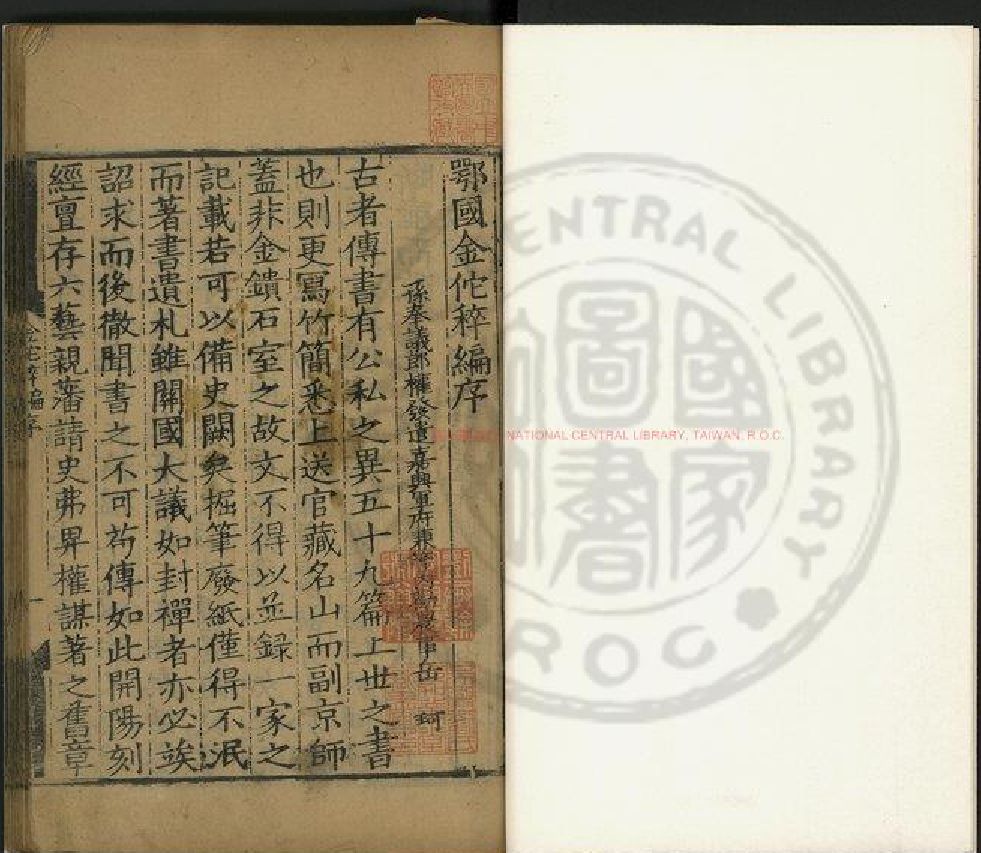 鄂國金佗稡編序
孫奉議郎權發遣嘉興軍府兼 勸農事岳 珂
古者傳書有公私之異五十九篇上世之書
也則更寫竹簡悉上送官藏名山而副京師
蓋非金鐀石室之故文不得以並録一家之
記載若可以備史闕矣掘筆廢紙僅得不泯
而著書遺札雖關國大議如封禪者亦必竢
詔求而後徹聞書之不可茍傳如此開陽刻
經亶存六藝親藩請史弗畀權謀著之舊章
NATIONAL CENTRAL LIBRARY, TAIWAN, R.O.C.
CENTRAL LIBRARY
ROC
國家圖書